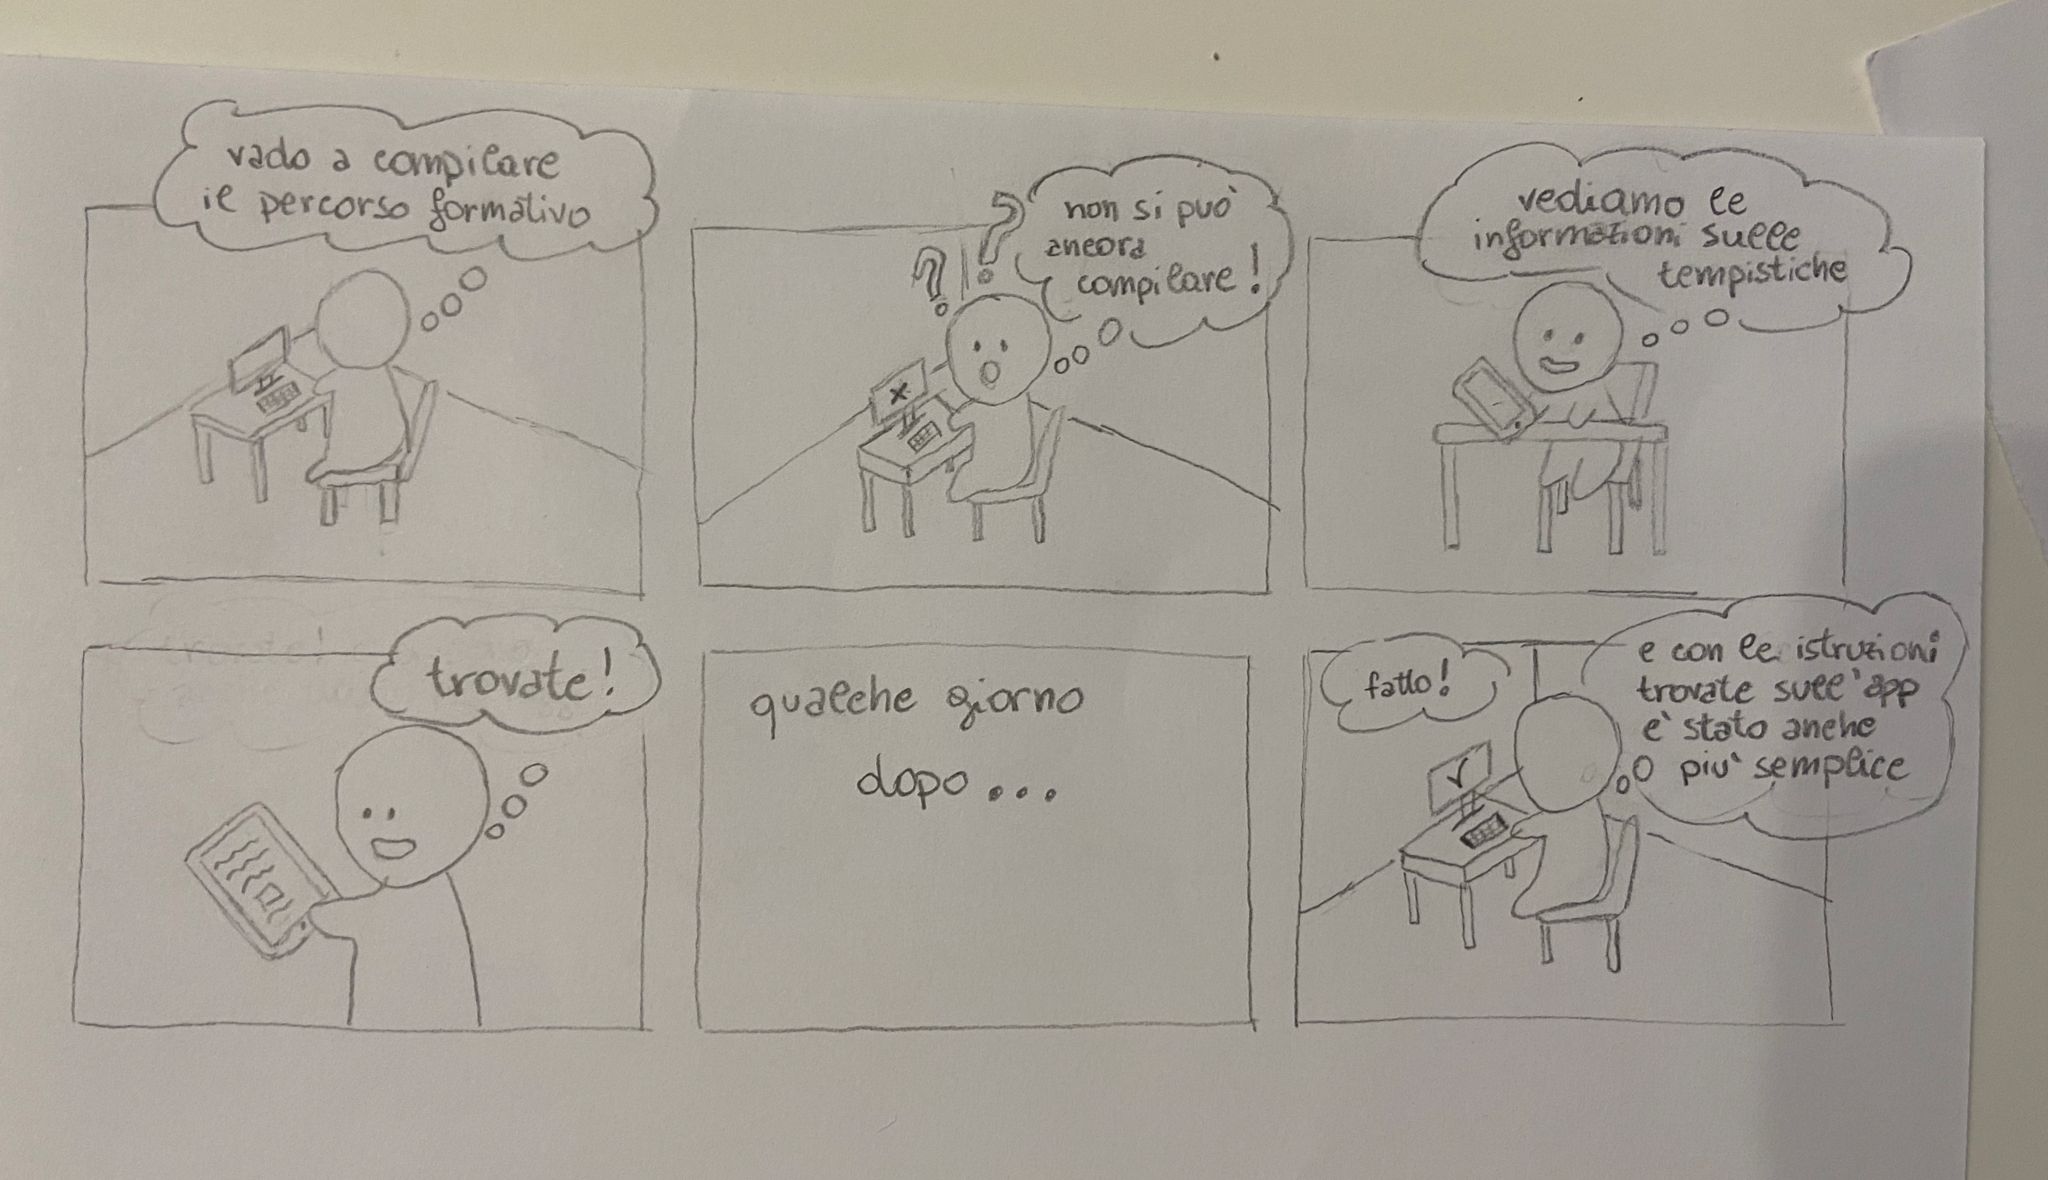 vado a compilare
il percorso formativo
? ?
non si può
ancora
compilare!
vediamo le
informazioni sulle
tempistiche
trovate!
qualche giorno
dopo...
fatto!
e con le istruzioni
trovate sull'app
è stato anche
più semplice